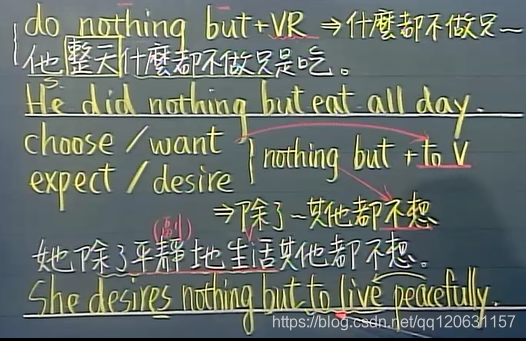 do nothing but + VR ⇒ 什麼都不做只~
他整天什麼都不做只是吃。
S.
He did nothing but eat all day.
choose / want
expect / desire
nothing but + to V
⇒ 除了~其他都不想
(副)
她除了平靜地生活其他都不想。
She desires nothing but to live peacefully.
https://blog.csdn.net/qq120631157